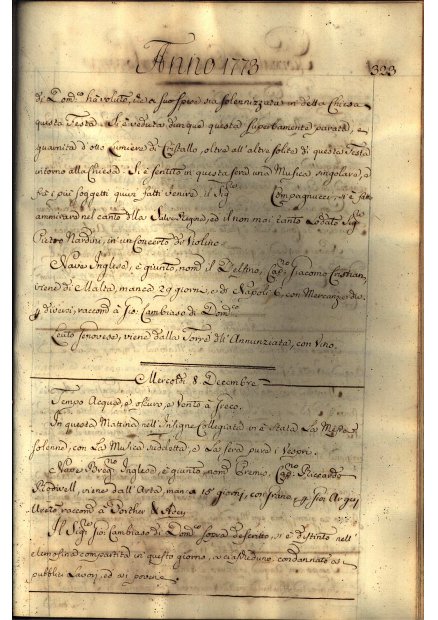 Anno 1773
323
di Dom.co hà voluto, che a sue spese sia solennizzata in detta Chiesa
questa Festa. Si è veduta dunque questa superbamente parata, e
guarnita d'otto Lumiere di Cristallo, oltre all'altre solite di questa Festa
intorno alla Chiesa. Si è sentito in questa sera una Musica singolare, a
più soggetti quivi fatti venire. il Sig.e Compagnucci, si è fatto
ammirare nel canto della Salve Regina, ed il non mai tanto Lodato Sig.e
Pietro Nardini, in un Concerto di Violino.
Nave Inglese, è giunto, nom.ta il Delfino, Cap.no Giacomo Cristian,
viene di Malta, manca 29 giorni, e di Napoli 6, con Mercanzie di
diversi, raccom.to à Gio: Cambiaso di Dom.co
Leuto Genovese, viene dalla Torre dell'Annunziata, con Vino.
Mercoledì 8. Decembre
Tempo Acqua, e oscuro, e Vento à Greco.
In questa Mattina nell'Insigne Collegiata vi è stata La Messa
solenne, con La Musica suddetta, e La sera pure i Vesperi.
Nave Inglese, è giunto, nom.ta Cap.no Riccardo
viene dall'Arta, manca 15 giorni, con grano, Gio: Argiri
raccom.to à Porther & Ady
Il Sig.e Gio: Cambiaso di Dom.co sopra descritto, si è distinto nell'
elemosina compartita in questo giorno, a ciascheduno condannato a
pubblici Lavori, ed ai poveri.